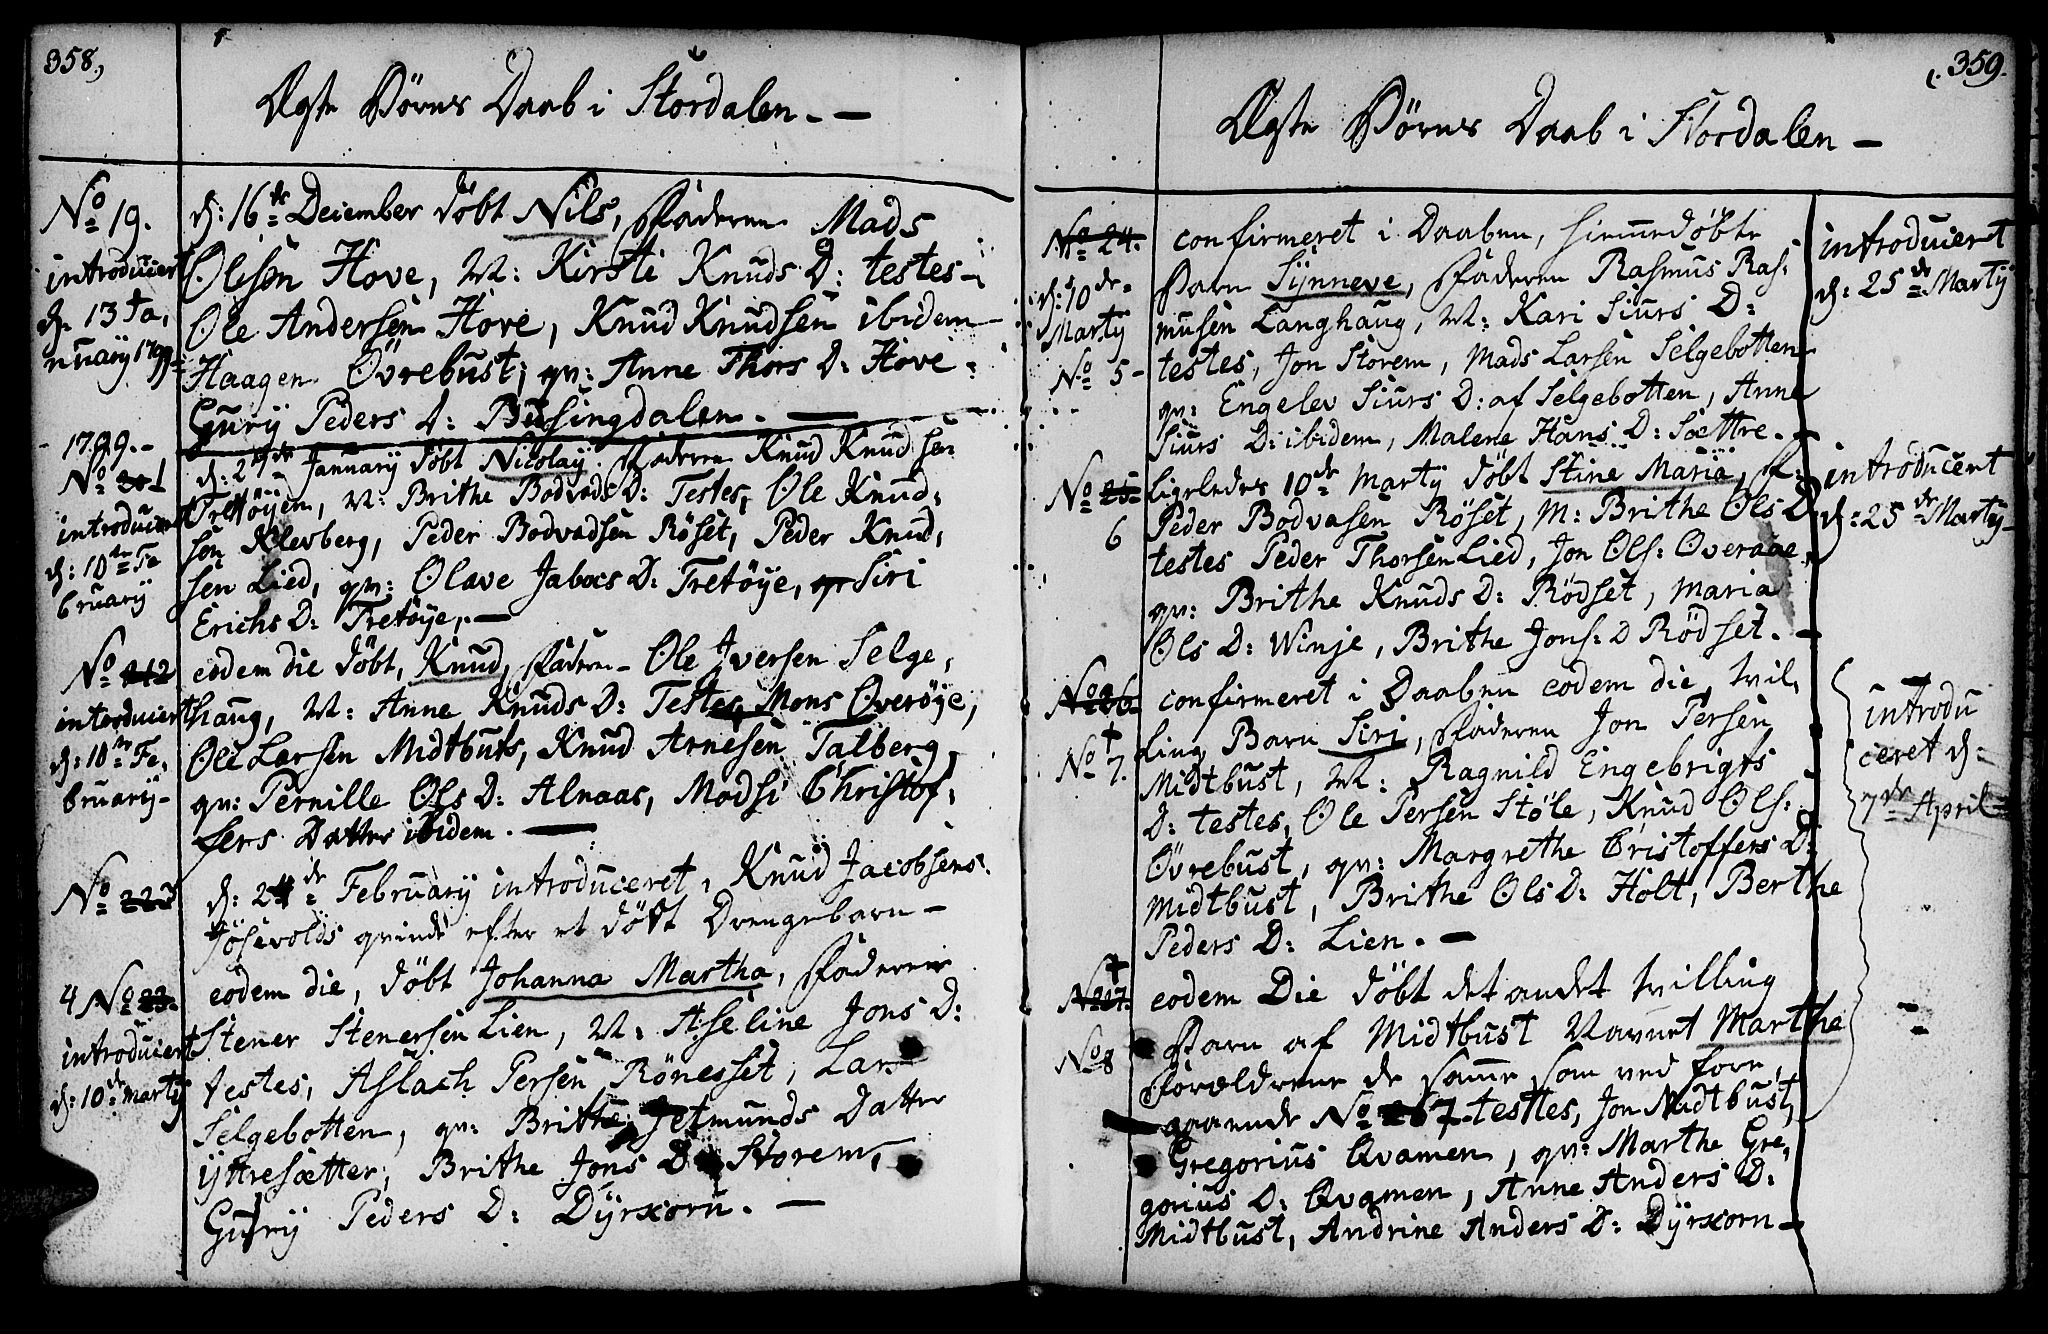 358,
Ægte Börns Daab i Stordalen. —
No 19.
introduciert
d: 13 Ja,
nuarÿ 1799
d: 16de Deiember döbt Nils, Faderen Mads
Olesen Hove, M: Kirsti Knuds D: testes
Ole Andersen Hove, Knud Knudsen ibidem
Haagen Övrebust, qv: Anne Thors D: Hove
Gurÿ Peders D: Bussingdalen. —
1799.
No 1
introduciert
d: 10de Fe
bruarÿ
d: 2 Januarÿ döbt Nicolaÿ. Faderen Knud Knudsen
Tretöÿen, M: Brithe Bodvads D: Testes, Ole Knud,
sen Klevberg, Peder Bodvadsen Röset, Peder Knud,
sen Lied, qv: Olave Jabocs D: Tretöÿe, Siri
Erichs D: Tretöÿe, —
No 2
introduciert
d: 10de Fe,
bruarÿ
eodem die döbt, Knud, Faderen Ole Iversen Selge,
haug, M: Anne Knuds D: Testes, Mons Overöÿe,
Ole Larsen Midtbuts, Knud Arnesen Talberg,
qv: Pernille Ols D: Alnaas, Madsi Christof,
fers Datter ibidem. —
No 3
d: 24de Februarÿ introduceret, Knud Jacobsens
Jösevolds qvinde efter et dödt Drengebarn —
4 No 23.
introduciert
d: 10de Martÿ
eodem die, döbt Johanna Martha, Faderen
Stener Stenersen Lien, M: Aseline Jons D:
testes, Aslach Persen Rönesset, Lars
Selgebotten, qv: Brithe Jetmunds Datter
ÿttresætter, Brithe Jons D: Storem,
Gurÿ Peders D: Dÿrkorn. —
359.
Ægte Börns Daab i Stordalen —
No 24.
d: 10de
Martÿ
No 5
confirmeret i Daaben, hiemmedöbte
Barn Sÿnneve, Faderen Rasmus Ras,
musen Langhaug, M: Kari Siurs D:
testes, Jon Storem, Mads Larsen Selgebotten
qv: Engelev Siurs D: af Selgebotten, Anne
Siurs D: ibidem, Malene Hans D: Sættre.
introduciert
d: 25de Martÿ
No 25
6
ligeledes 10de Martÿ döbt Stine Maria, F:
Peder Bodvasen Röset, M: Brithe Ols D,
testes Peder Thorsen Lied, Jon Ols: Overaae,
qv: Brithe Knuds D: Rödset, Maria
Ols D: Winje, Brithe Jons: D Rödset. —
introducert
d: 25de Martÿ
No 26
No 7.
confirmeret i Daaben eodem die, tvil,
ling Barn Siri, Faderen Jon Persen
Midtbust, M: Ragnild Engebrigts
D: testes, Ole Persen Stöle, Knud Ols:
Övrebust, qv: Margrethe Cristoffers D:
Midtbust, Brithe Ols D: Holt, Berthe
Peders D: Lien. —
introdu
ceret d:
7de April
No 27.
No 8
eodem Die döbt det andet tvilling
Barn af Midtbust Navnet Marthe
Forældrene de samme som ved fore,
gaaende No 7 testtes, Jon Midtbust,
Gregorius Qvamen, qv: Marthe Gre,
gorius D: Qvamen, Anne Anders D:
Midtbust, Andrine Anders D: Dÿrkorn —